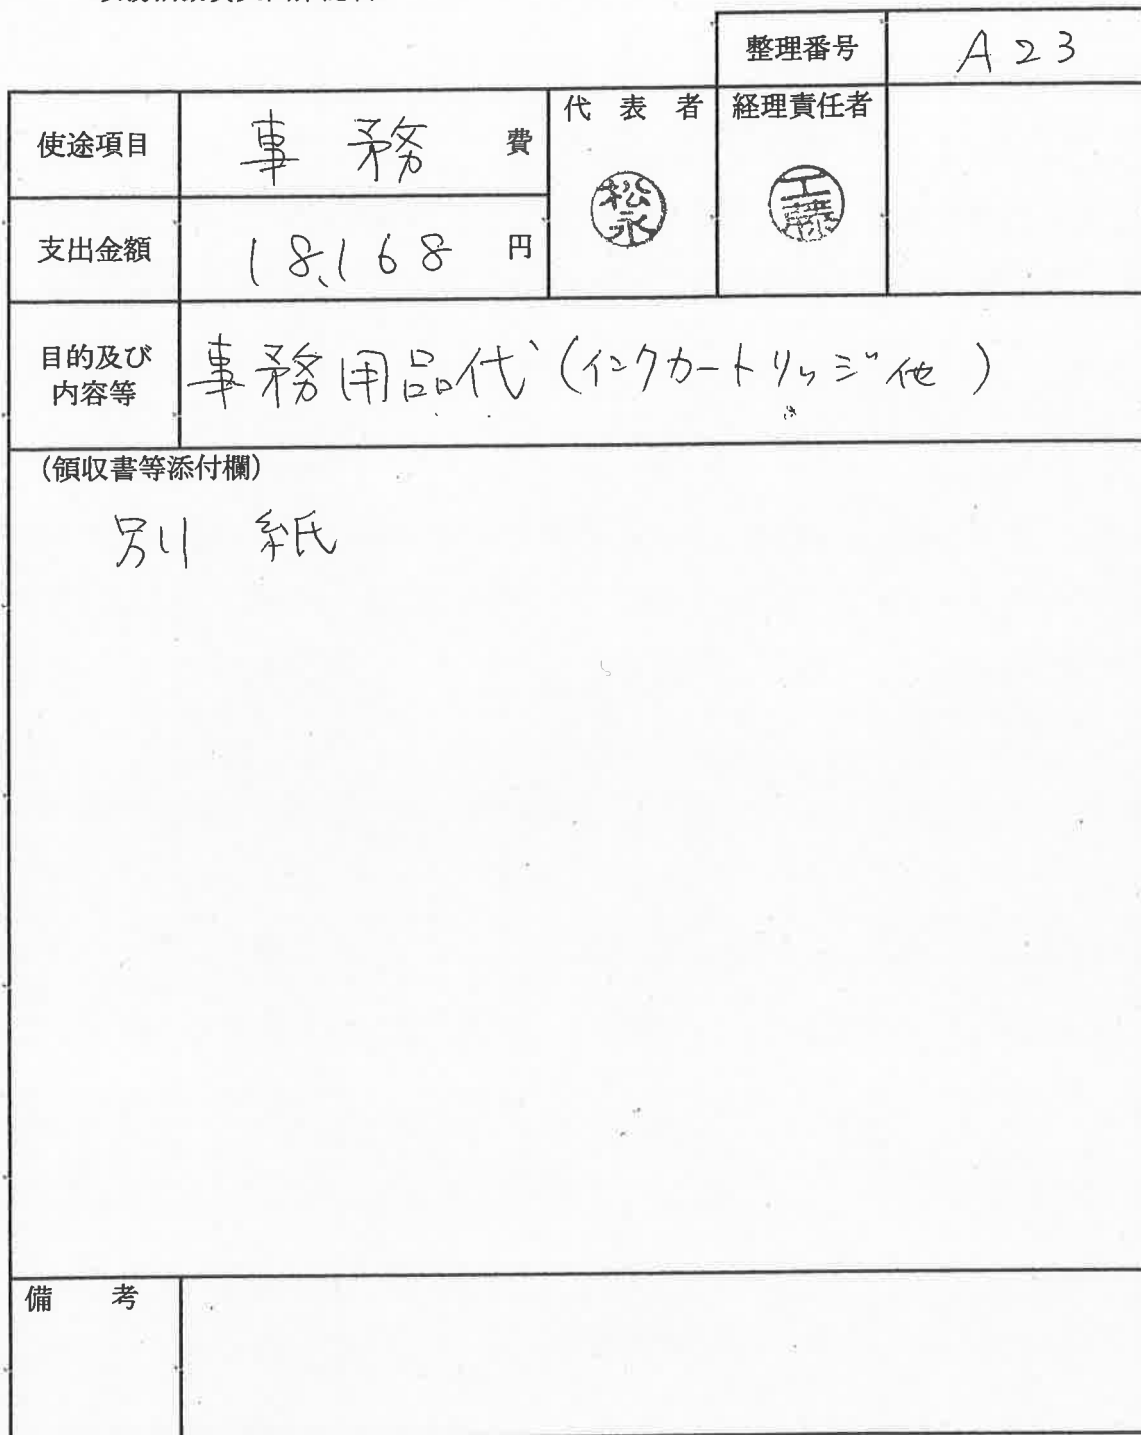 整理番号 A23
使途項目 事務 費
代表者 経理責任者
松永
工藤
支出金額 18,168 円
目的及び
内容等
事務用品代(インクカートリッジ他)
(領収書等添付欄)
別紙
備 考